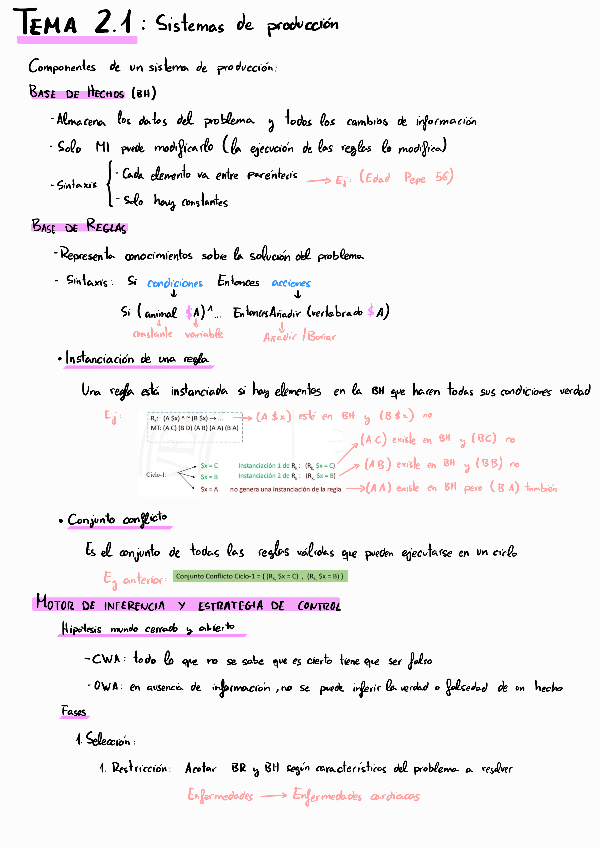 TEMA 2.1: Sistemas de producción
Componentes de un sistema de producción:
BASE DE HECHOS (BH)
- Almacena los datos del problema y todos los cambios de información
- Solo MI puede modificarlo (la ejecución de las reglas lo modifica)
- Sintaxis { - Cada elemento va entre paréntesis → Ej: (Edad Pepe 56)
- Solo hay constantes
BASE DE REGLAS
- Representa conocimientos sobre la solución del problema
- Sintaxis: Si condiciones Entonces acciones
Si (animal $A)^... Entonces Añadir (vertebrado $A)
constante variable Añadir / Borrar
• Instanciación de una regla
Una regla está instanciada si hay elementos en la BH que haren todas sus condiciones verdad
Ej: R₁: (A $x) ^ ~ (B $x) → ... → (A $x) esté en BH y (B $x) no
MT: (A C) (B D) (A B) (A A) (B A)
(A C) existe en BH y (B C) no
Ciclo-1: $x = C Instanciación 1 de R₁: (R₁, $x = C)
(A B) existe en BH y (B B) no
$x = B Instanciación 2 de R₁: (R₁, $x = B)
$x = A no genera una instanciación de la regla → (A A) existe en BH pero (B A) también
• Conjunto conflicto
Es el conjunto de todas las reglas válidas que pueden ejecutarse en un ciclo
Ej anterior: Conjunto Conflicto Ciclo-1 = { (R₁, $x = C) , (R₁, $x = B) }
MOTOR DE INFERENCIA Y ESTRATEGIA DE CONTROL
Hipótesis mundo cerrado y abierto
- CWA: todo lo que no se sabe que es cierto tiene que ser falso
- OWA: en ausencia de información, no se puede inferir la verdad o falsedad de un hecho
Fases
1. Selección:
1. Restricción: Acotar BR y BH según características del problema a resolver
Enfermedades → Enfermedades cardiacas